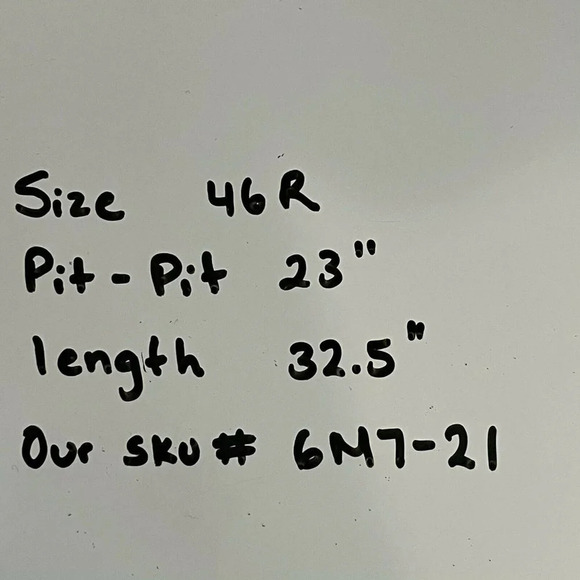 Size 46R
Pit-Pit 23"
length 32.5"
Our sku# 6M7-21